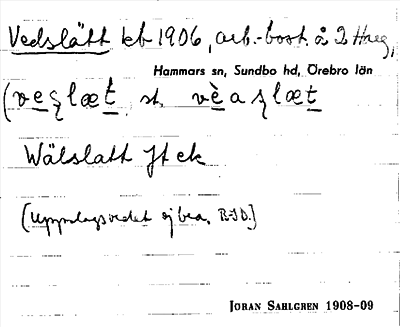 Vedslätt kb 1906, arb.-bost. å 2 Haeg,
Hammars sn, Sundbo hd, Örebro län
(veʂlæt, st. vèaʂlæt
Wälslatt Jt ek
(Uppslagsordet ej bra. BJD.)
JORAN SAHLGREN 1908-09